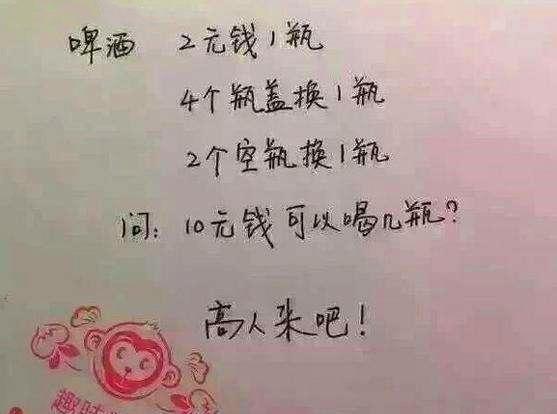 啤酒 2元钱1瓶
4个瓶盖换1瓶
2个空瓶换1瓶
问：10元钱可以喝几瓶？
高人来吧！
趣味